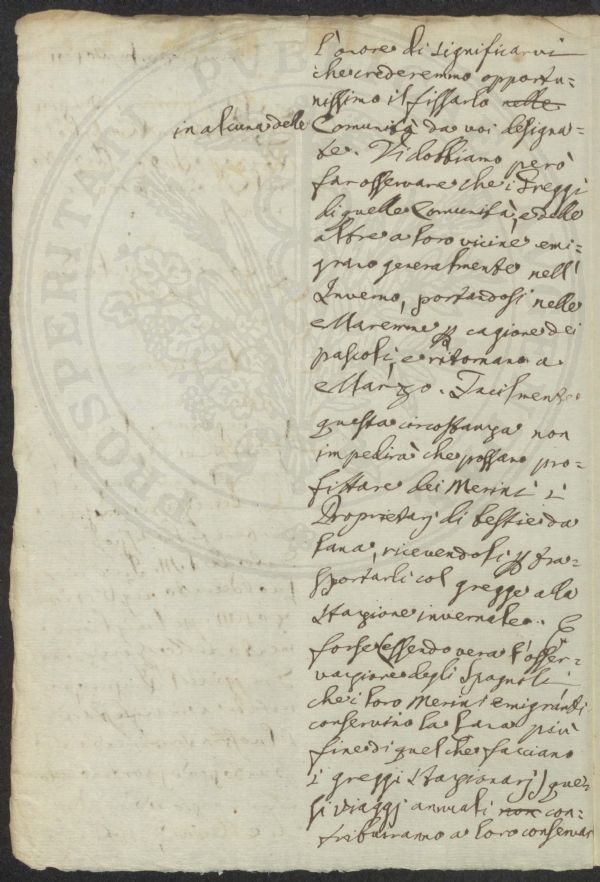 l'onore di significarvi
che crederemmo opportu-
nissimo il fissarlo nelle
in alcuna delle Comunità da voi designa-
te. Vi dobbiamo però
far osservare che i Greggi
di quelle Comunità, e delle
altre a loro vicine emi-
grano generalmente nell'
Inverno, portandosi nelle
Maremme p cagione dei
pascoli, e ritornano a
Marzo. Facilmente
questa circostanza non
impedirà che possano pro-
fittare dei Merini i
Proprietarj di bestie da
lana, ricevendoli p tra-
sportarli col gregge alla
stazione invernale. E
forse (essendo vera l'osser-
vazione degli Spagnoli
che i loro Merini emigranti
conservino la lana più
fine di quel che facciano
i greggi stazionarj) ques-
ti viaggj annuali non con-
tribuiranno a loro conservar
PROSPERITATI PUB